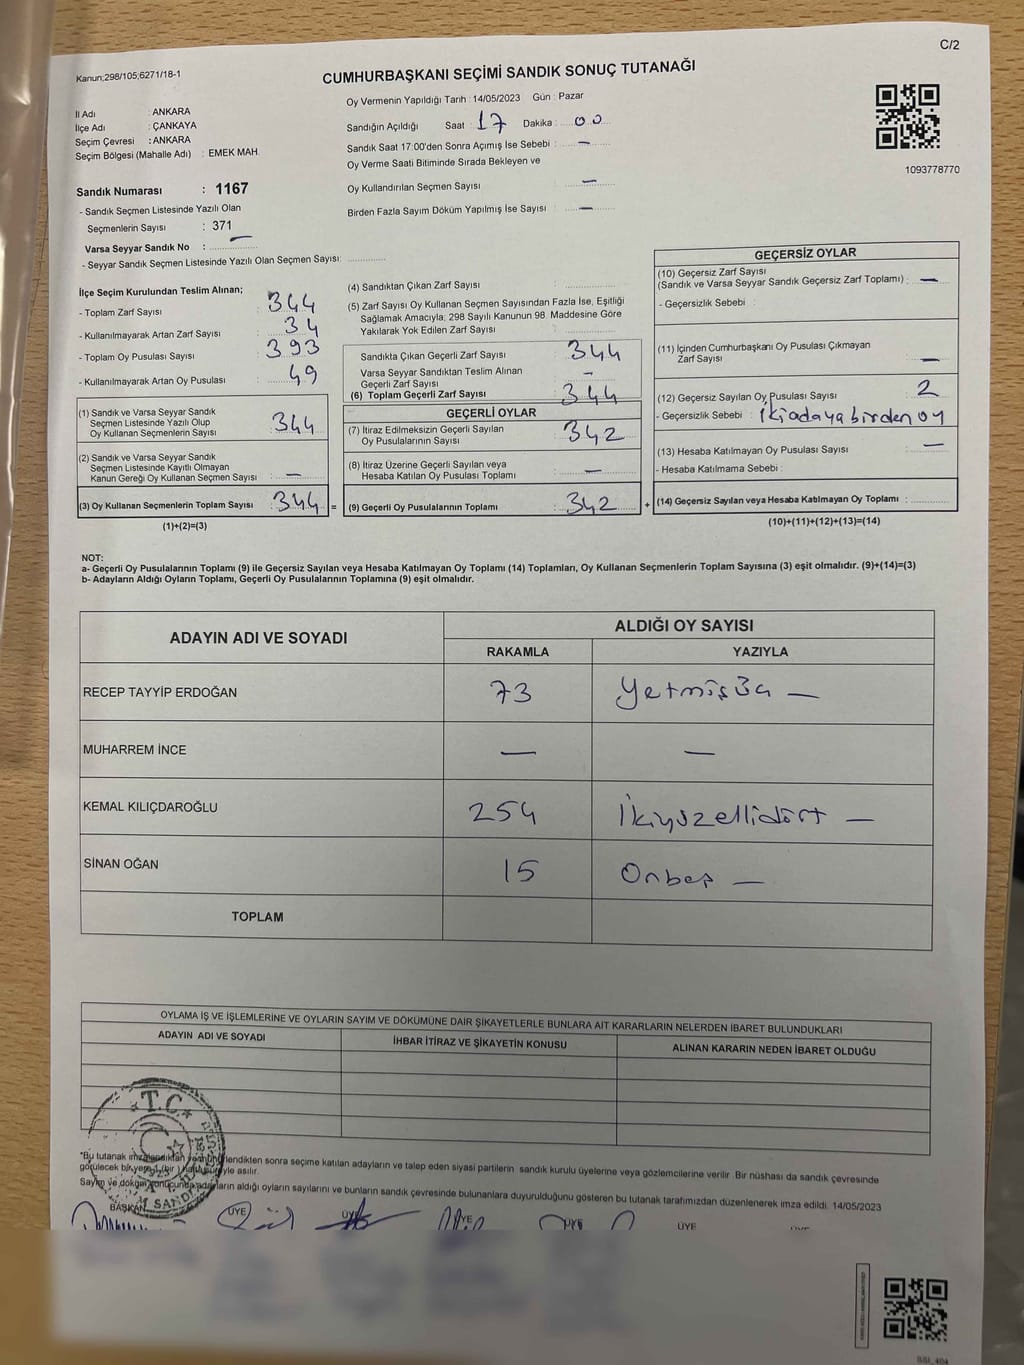 C/2
Kanun;298/105;6271/18-1
CUMHURBAŞKANI SEÇİMİ SANDIK SONUÇ TUTANAĞI
Oy Vermenin Yapıldığı Tarih : 14/05/2023 Gün : Pazar
İl Adı : ANKARA
İlçe Adı : ÇANKAYA
Seçim Çevresi : ANKARA
Seçim Bölgesi (Mahalle Adı) : EMEK MAH.
Sandığın Açıldığı Saat : 17 Dakika : 00
Sandık Saat 17:00'den Sonra Açımış İse Sebebi : —
Oy Verme Saati Bitiminde Sırada Bekleyen ve
Oy Kullandırılan Seçmen Sayısı : —
Birden Fazla Sayım Döküm Yapılmış İse Sayısı : —
1093778770
Sandık Numarası : 1167
- Sandık Seçmen Listesinde Yazılı Olan
Seçmenlerin Sayısı : 371
Varsa Seyyar Sandık No : —
- Seyyar Sandık Seçmen Listesinde Yazılı Olan Seçmen Sayısı:
İlçe Seçim Kurulundan Teslim Alınan;
- Toplam Zarf Sayısı : 344
- Kullanılmayarak Artan Zarf Sayısı : 34
- Toplam Oy Pusulası Sayısı : 393
- Kullanılmayarak Artan Oy Pusulası : 49
(1) Sandık ve Varsa Seyyar Sandık
Seçmen Listesinde Yazılı Olup
Oy Kullanan Seçmenlerin Sayısı : 344
(2) Sandık ve Varsa Seyyar Sandık
Seçmen Listesinde Kayıtlı Olmayan
Kanun Gereği Oy Kullanan Seçmen Sayısı : —
(3) Oy Kullanan Seçmenlerin Toplam Sayısı : 344 =
(1)+(2)=(3)
(4) Sandıktan Çıkan Zarf Sayısı :
(5) Zarf Sayısı Oy Kullanan Seçmen Sayısından Fazla İse, Eşitliği
Sağlamak Amacıyla; 298 Sayılı Kanunun 98. Maddesine Göre
Yakılarak Yok Edilen Zarf Sayısı :
Sandıkta Çıkan Geçerli Zarf Sayısı : 344
Varsa Seyyar Sandıktan Teslim Alınan
Geçerli Zarf Sayısı : –
(6) Toplam Geçerli Zarf Sayısı : 344
GEÇERLİ OYLAR
(7) İtiraz Edilmeksizin Geçerli Sayılan
Oy Pusulalarının Sayısı : 342
(8) İtiraz Üzerine Geçerli Sayılan veya
Hesaba Katılan Oy Pusulası Toplamı : —
(9) Geçerli Oy Pusulalarının Toplamı : 342 +
GEÇERSİZ OYLAR
(10) Geçersiz Zarf Sayısı
(Sandık ve Varsa Seyyar Sandık Geçersiz Zarf Toplamı) : —
- Geçersizlik Sebebi :
(11) İçinden Cumhurbaşkanı Oy Pusulası Çıkmayan
Zarf Sayısı : —
(12) Geçersiz Sayılan Oy Pusulası Sayısı : 2
- Geçersizlik Sebebi : İki adaya birden oy
(13) Hesaba Katılmayan Oy Pusulası Sayısı : —
- Hesaba Katılmama Sebebi :
(14) Geçersiz Sayılan veya Hesaba Katılmayan Oy Toplamı :
(10)+(11)+(12)+(13)=(14)
NOT:
a- Geçerli Oy Pusulalarının Toplamı (9) ile Geçersiz Sayılan veya Hesaba Katılmayan Oy Toplamı (14) Toplamları, Oy Kullanan Seçmenlerin Toplam Sayısına (3) eşit olmalıdır. (9)+(14)=(3)
b- Adayların Aldığı Oyların Toplamı, Geçerli Oy Pusulalarının Toplamına (9) eşit olmalıdır.
ADAYIN ADI VE SOYADI
ALDIĞI OY SAYISI
RAKAMLA YAZIYLA
RECEP TAYYİP ERDOĞAN 73 Yetmişüç —
MUHARREM İNCE — —
KEMAL KILIÇDAROĞLU 254 İkiyüzellidört —
SİNAN OĞAN 15 Onbeş —
TOPLAM
OYLAMA İŞ VE İŞLEMLERİNE VE OYLARIN SAYIM VE DÖKÜMÜNE DAİR ŞİKAYETLERLE BUNLARA AİT KARARLARIN NELERDEN İBARET BULUNDUKLARI
ADAYIN ADI VE SOYADI İHBAR İTİRAZ VE ŞİKAYETİN KONUSU ALINAN KARARIN NEDEN İBARET OLDUĞU
T.C.
*Bu tutanak imzalandıktan ve mühürlendikten sonra seçime katılan adayların ve talep eden siyasi partilerin sandık kurulu üyelerine veya gözlemcilerine verilir. Bir nüshası da sandık çevresinde
görülecek bir yere 1 (bir) hafta süreyle asılır.
Sayım ve döküm sonucunda adayların aldığı oyların sayılarını ve bunların sandık çevresinde bulunanlara duyurulduğunu gösteren bu tutanak tarafımızdan düzenlenerek imza edildi. 14/05/2023
BAŞKAN ÜYE ÜYE ÜYE ÜYE ÜYE